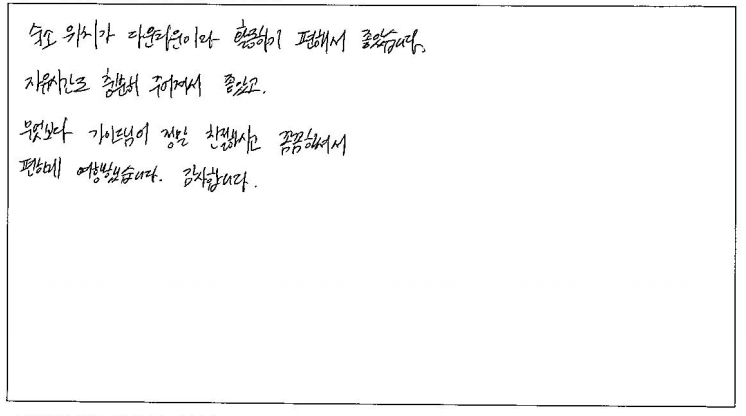 숙소 위치가 다운타운이라 활동하기 편해서 좋았습니다.
자유시간도 충분히 주어져서 좋았고.
무엇보다 가이드님이 정말 친절하시고 꼼꼼하셔서
편하게 여행했습니다. 감사합니다.